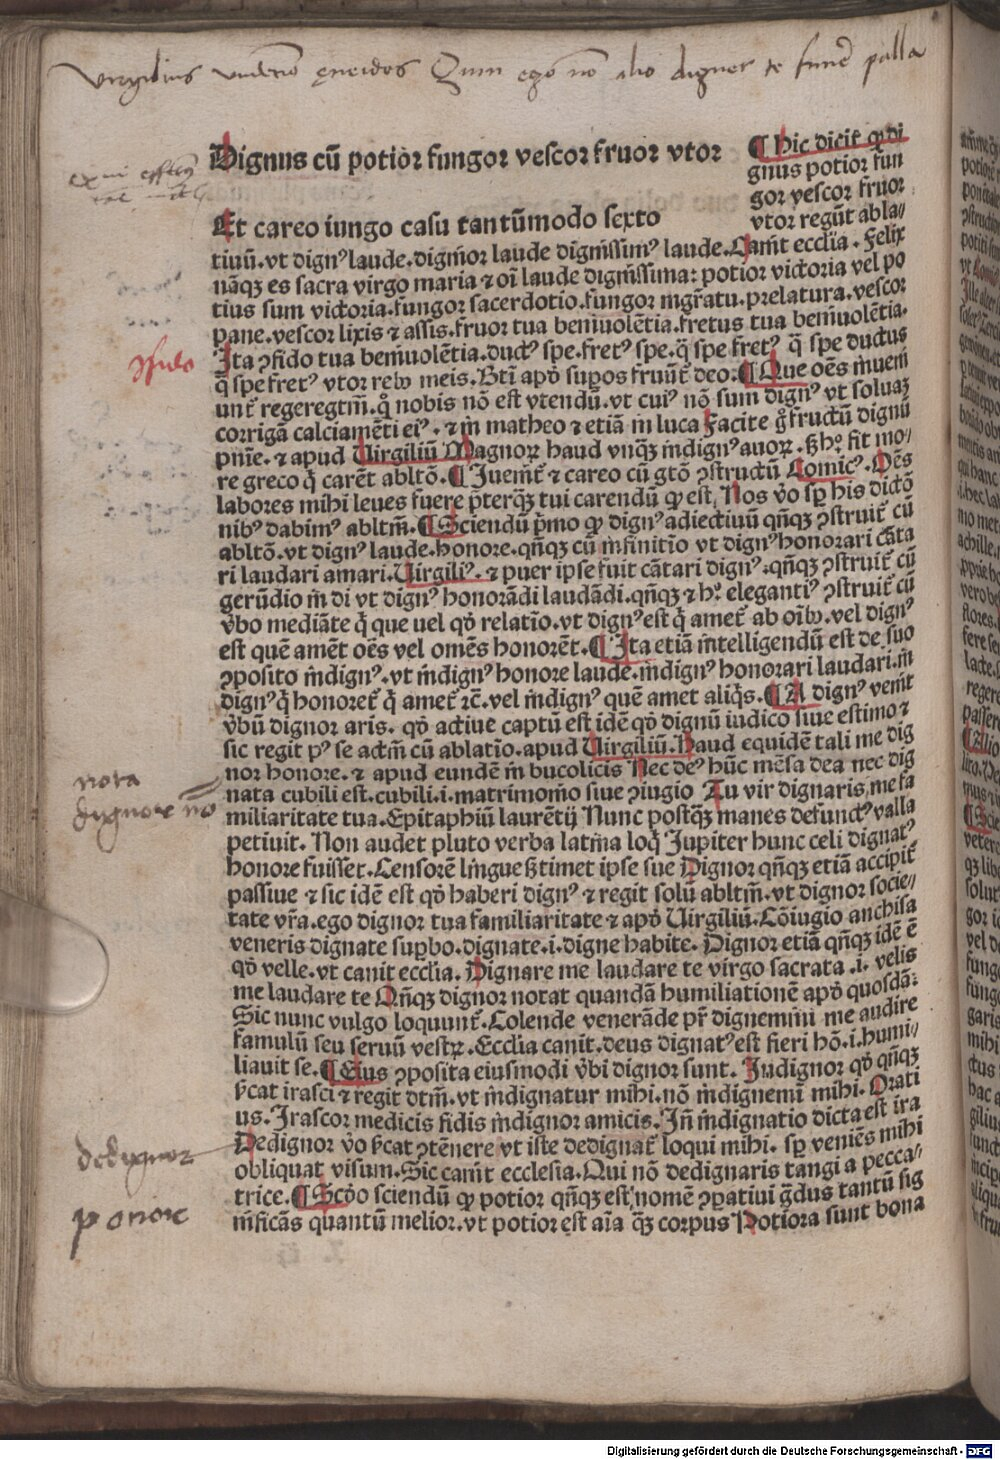 Virgilius undecimo ęneidos Quin ego nō alio digner te funē palla
Dignus cū potior fungor vescor fruor vtor
¶ Hic dicit̄ ꝙ di
gnus potior fun
gor vescor fruor
Et careo iungo casu tantūmodo sexto
vtor regūt abla/
tiuū.vt dignꝰ laude.digm̄or laude digm̄ssimꝰ laude.Cam̄t ecclīa. Felix
nāqꝫ es sacra virgo maria ⁊ oī laude digm̄ssima: potior victoria vel po
tius sum victoria.fungor sacerdotio.fungor mgr̄atu.prelatura.vescor
pane.vescor lixis ⁊ assis.fruor tua bem̄uolētia.fretus tua bem̄uolētia.
Ita ꝯfido tua bem̄uolētia.ductꝰ spe.fretꝰ spe.q̄ spe fretꝰ q̄ spe ductus
ꝯfido
q̄ spe fretꝰ vtor rebꝰ meis.Btī apd̄ supos fruūt̄ deo.¶ Que oēs m̄uem̄
unt̄ regeregtm̄.qꝛ nobis nō est vtendū.vt cuiꝰ nō sum dignꝰ vt soluaꝫ
corrigā calciamēti eiꝰ. ⁊ in matheo ⁊ etiā in luca Facite gͦ fructū dignū
pnīe. ⁊ apud Virgiliū Magnoꝝ haud vnqꝫ indignꝰ auoꝝ. Sꝫ hꝰ fit mo/
re greco q̄ carēt abltō.¶ Juem̄t̄ ⁊ careo cū gtō ꝯstructū Comicꝰ. Oēs
labores mihi leues fuere p̄terqꝫ tui carendū ꝙ est, Nos v̄o sꝑ his dictō
nibꝰ dabimꝰ abltm̄.¶ Sciendū p̄mo ꝙ dignꝰ adiectiuū qn̄qꝫ ꝯstruit̄ cū
abltō.vt dignꝰ laude.honore.qn̄qꝫ cū infinitīo vt dignꝰ honorari cāta
ri laudari amari.Virgiliꝰ. ⁊ puer ipse fuit cātari dignꝰ.qn̄qꝫ ꝯstruit̄ cū
gerūdio in di vt dignꝰ honorādi laudādi.qn̄qꝫ ⁊ hꝰ elegantiꝰ ꝯstruit̄ cū
v̄bo mediāte q̄ que uel qd̄ relatīo.vt dignꝰ est q̄ amet̄ ab oībꝰ.vel dignꝰ
est quē amēt oēs vel omēs honorēt.¶ Ita etiā intelligendū est de suo
ꝯposito indignꝰ.vt indignꝰ honore laude.indignꝰ honorari laudari.in
dignꝰ q̄ honoret̄ q̄ amet̄ ⁊c̄.vel indignꝰ quē amet aliq̄s.¶ A dignꝰ vem̄t
v̄bū dignor aris. qd̄ actiue captū est idē qd̄ dignū iudico siue estimo ⁊
sic regit pꝰ se actm̄ cū ablatīo.apud Virgiliū.Haud equidē tali me dig
nor honore. ⁊ apud eundē in bucolicis Nec deꝰ hūc mēsa dea nec dig
nota
nata cubili est.cubili.i.matrimonio siue ꝯiugio Tu vir dignaris me fa
dignore nō
miliaritate tua.Epitaphiū laurētij Nunc postqꝫ manes defunctꝰ valla
petiuit. Non audet pluto verba latina loq̄ Jupiter hunc celi dignatꝰ
honore fuisset.Censorē lingue sꝫ timet ipse sue Dignor qn̄qꝫ etiā accipit̄
passiue ⁊ sic idē est qd̄ haberi dignꝰ ⁊ regit solū abltm̄.vt dignor socie/
tate vr̄a.ego dignor tua familiaritate ⁊ apd̄ Virgiliū.Cōiugio anchisa
veneris dignate supbo.dignate.i.digne habite. Dignor etiā qn̄qꝫ idē ē
qd̄ velle.vt canit ecclīa. Dignare me laudare te virgo sacrata .i. velis
me laudare te Qn̄qꝫ dignor notat quandā humiliationē apd̄ quosdā:
Sic nunc vulgo loquunt̄.Colende venerāde pr̄ dignemini me audire
famulū seu seruū vestꝝ.Ecclīa canit.deus dignatꝰ est fieri hō.i.humi/
liauit se.¶ Eius ꝯposita eiusmodi v̄bi dignor sunt. Indignor qd̄ qn̄qꝫ
sc̄at irasci ⁊ regit dtm̄.vt indignatur mihi.nō indignemi mihi. Orati
us.Irascor medicis fidis indignor amicis. In̄ indignatio dicta est ira
dedignor
Dedignor v̄o sc̄at ꝯtēnere vt iste dedignat̄ loqui mihi. sꝑ veniēs mihi
obliquat visum.Sic canit ecclesia.Qui nō dedignaris tangi a pecca/
trice.¶ Scd̄o sciendū ꝙ potior qn̄qꝫ est nomē ꝯpatiui gdus tantū sig
nificās quantū melior.vt potior est aīa qꝫ corpus Potiora sunt bona
Digitalisierung gefördert durch die Deutsche Forschungsgemeinschaft - DFG